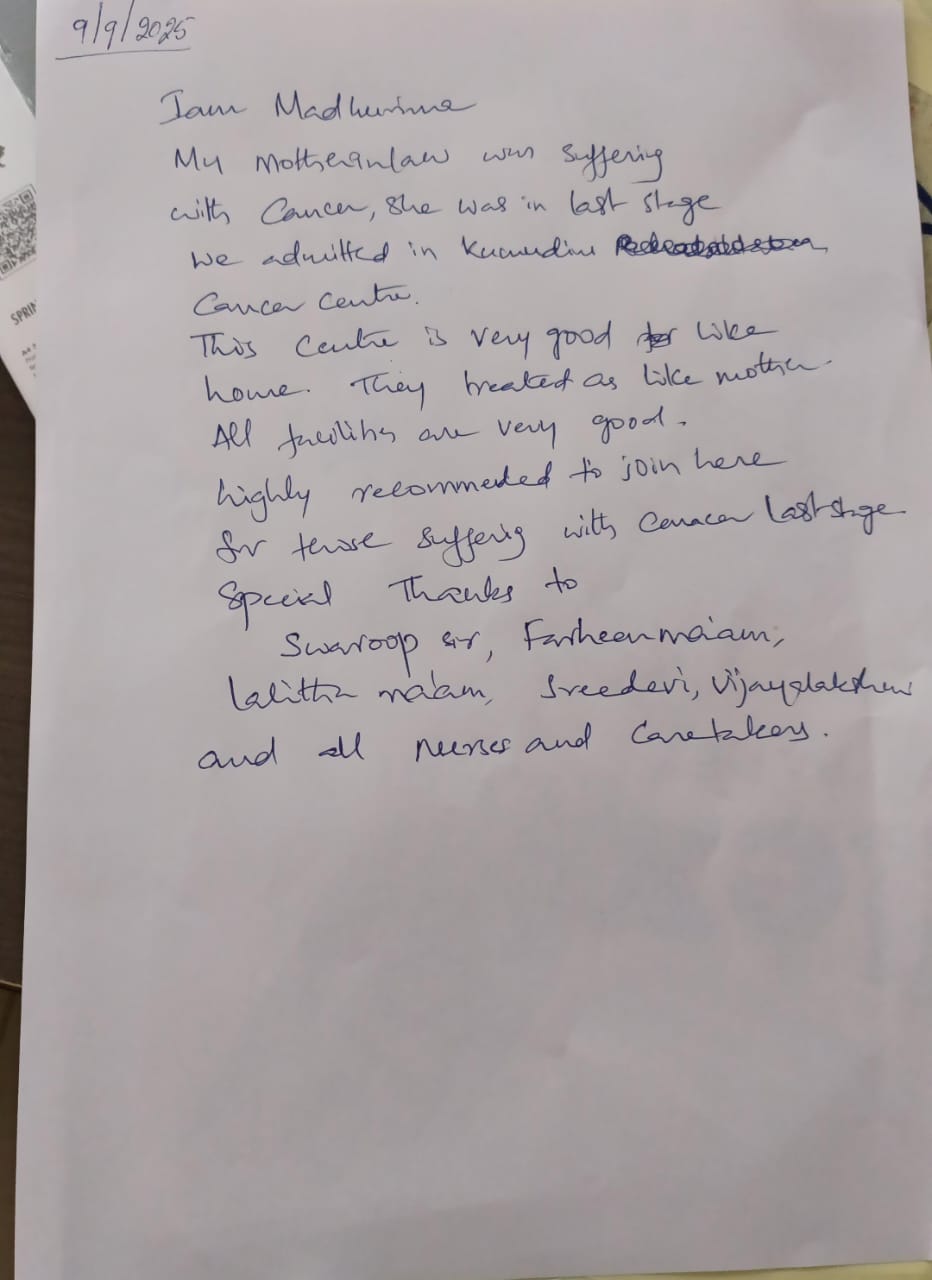 9/9/2025
Iam Madhurima
My Motherinlaw was suffering
with Cancer, She was in last stage
We admitted in Kumudini
Cancer Centre.
This Centre is very good like
home. They treated as like mother.
All facilities are very good.
highly recommeded to join here
for those sufferig with Canacer last stage
Special Thanks to
Swaroop sir, Farheen ma'am,
Lalitha ma'am, Sreedevi, Vijayalakshmi
and all nurses and Caretakers.
SPRIN